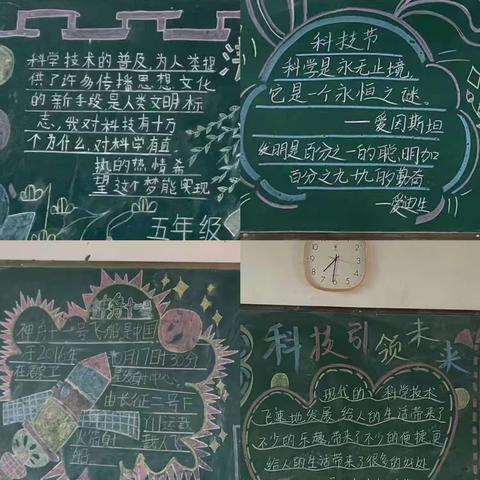 科学技术的普及,为人类提
供了许多传播思想文化
的新手段是人类文明标
志,我对科技有十万
个为什么,对科学有直
执的热情希
望这个梦能实现
五年级
科技节
科学是永无止境,
它是一个永恒之谜。
——爱因斯坦
发明是百分之一的聪明加
百分之九十九的勤奋
—爱迪生
神舟十一号飞船是中国
于2016年10月17日7时30分
在酒泉卫星发射中心,
由长征二号F
火箭发射载人飞
船
科技引领未来
现代的科学技术
飞速地发展给人的生活带来了
不少的乐趣带来了不少的便捷更
给人的生活带来了很多的好处